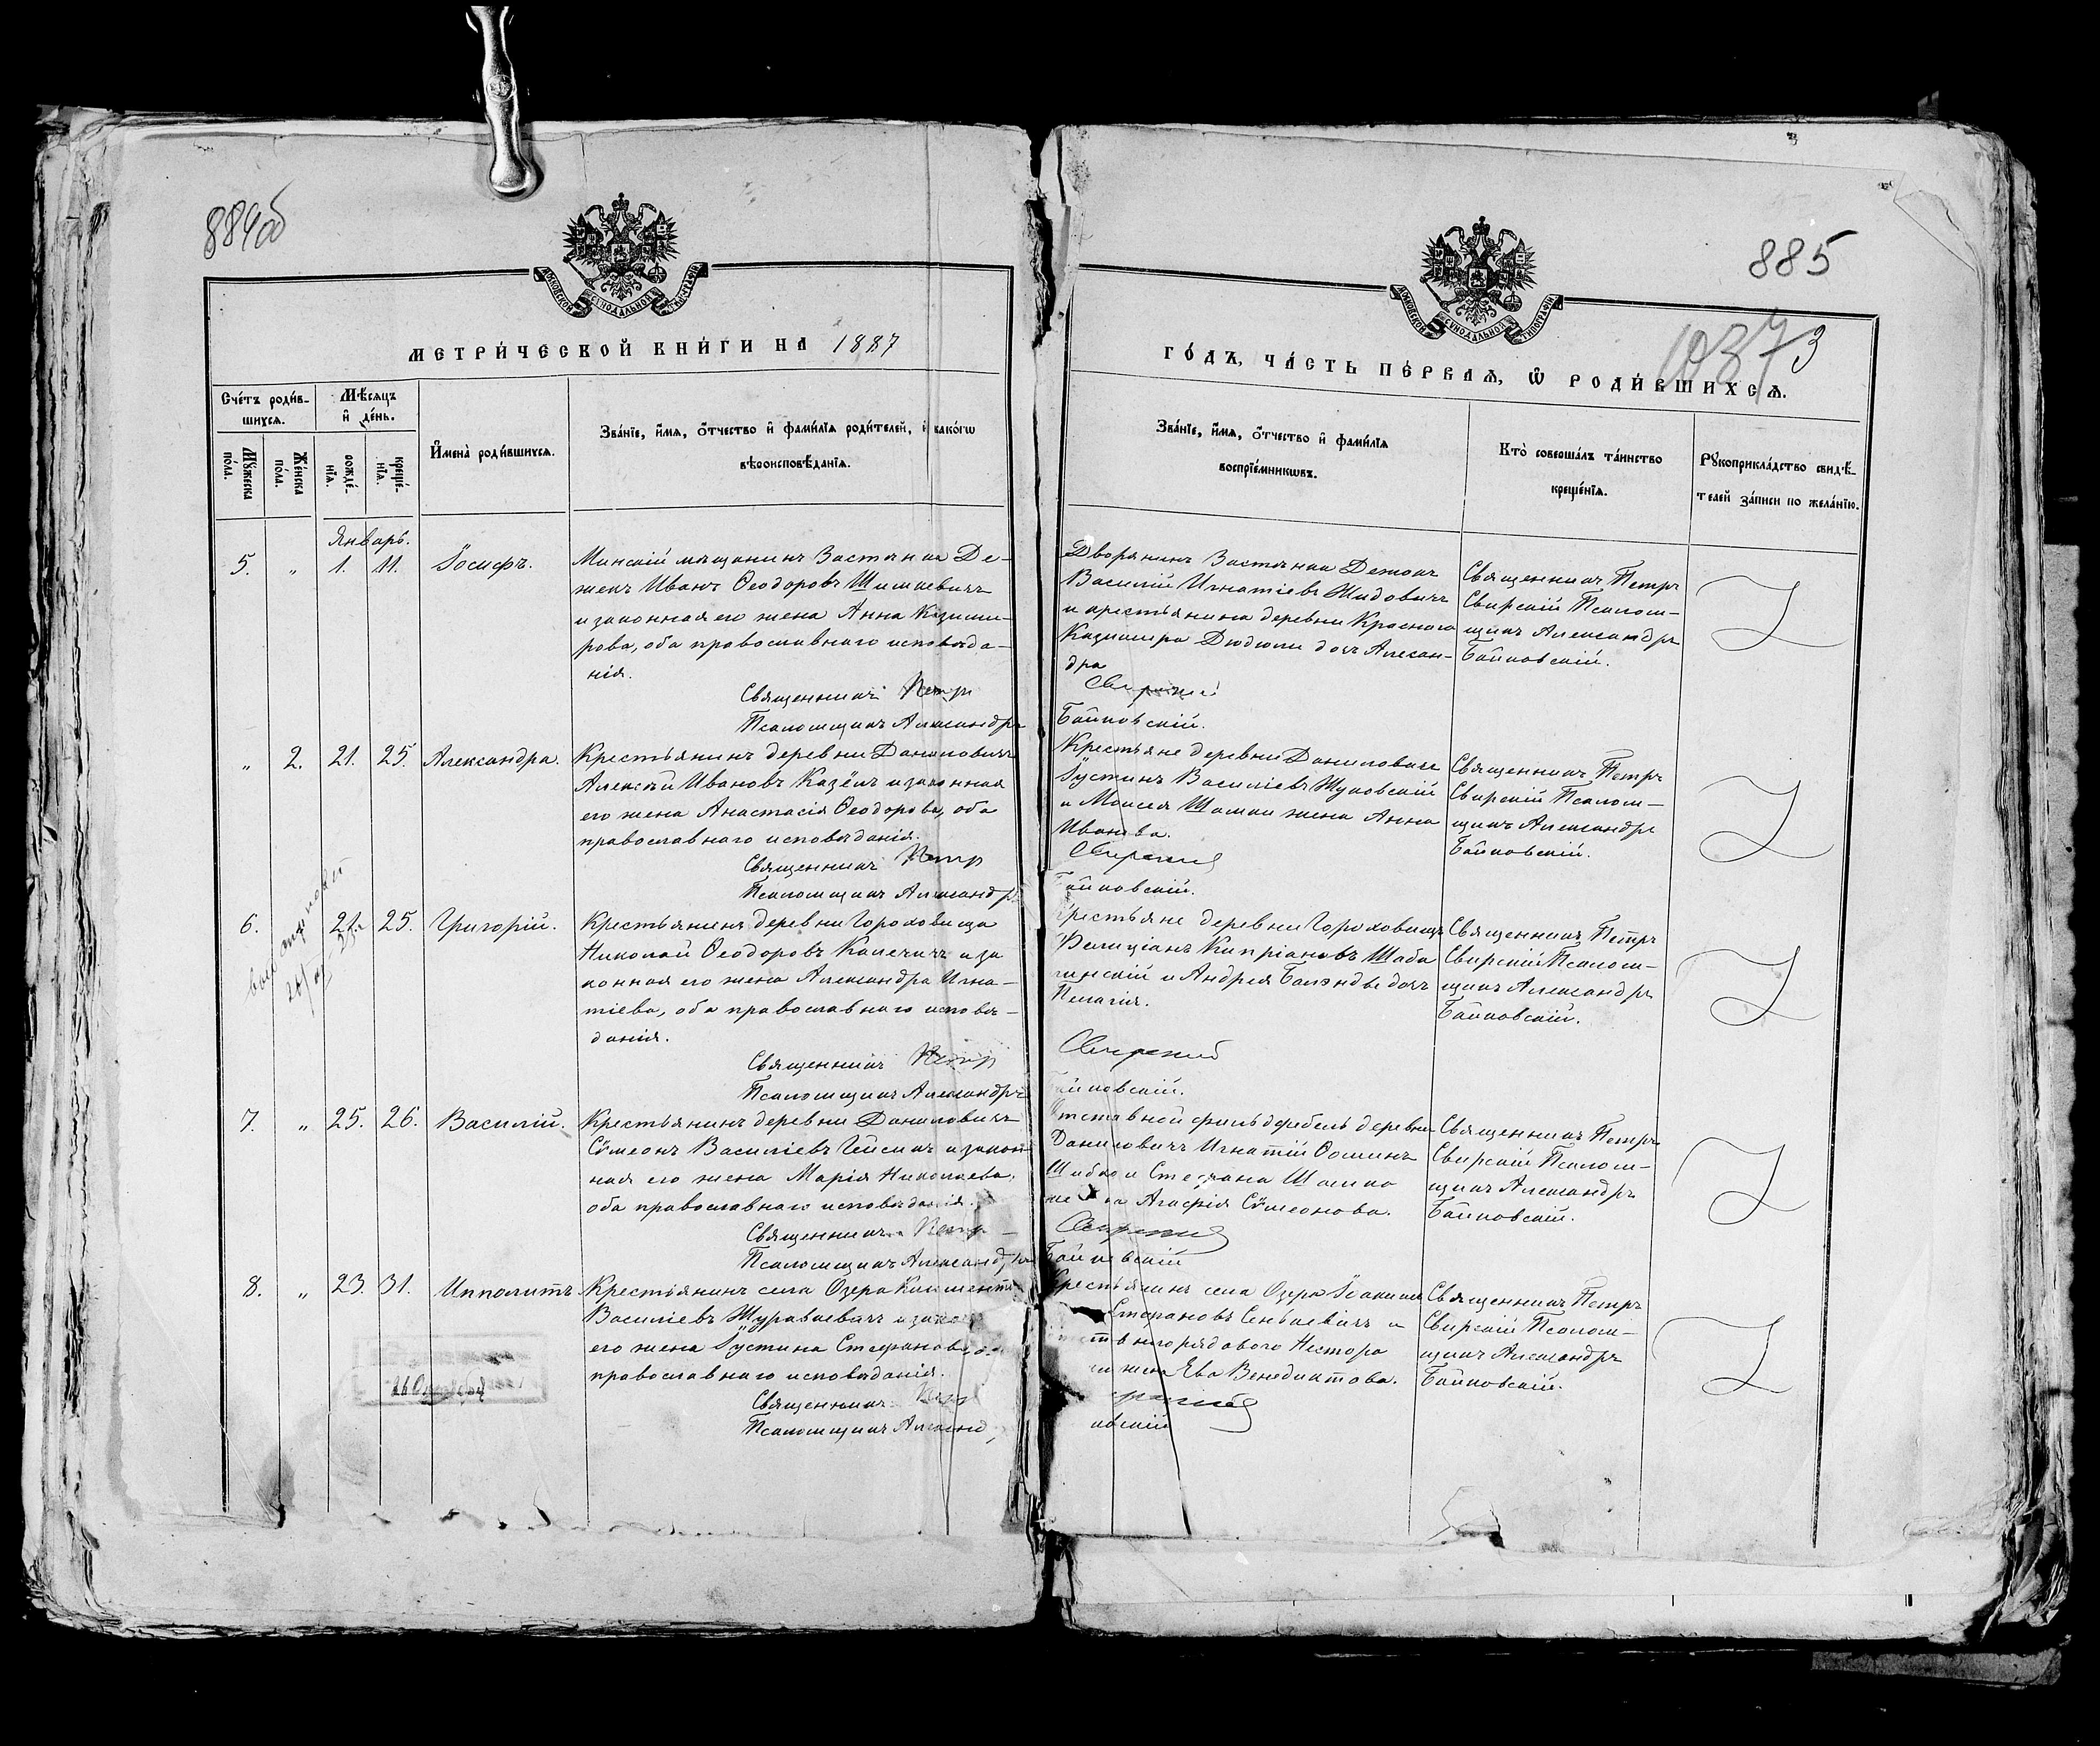 884об
МОСКОВСКОЙ СѴНОДАЛЬНОЙ ТИПОГРАФІИ
МЕТРИ́ЧЕСКОЙ КНИ́ГИ НА 1887
Сче́тъ роди́в-
шихся.
Мѣ́сяцъ
и҆ де́нь.
И҆мена̀ роди́вшихся.
Зва́нїе, и҆́мя, ѻ҆́тчество и҆ фами́лїя роди́телей, и҆ како́гѡ
вѣроисповѣ́данїя.
Мꙋ́жеска
по́ла.
Же́нска
по́ла.
рожде́-
нїя.
креще́-
нїя.
Январь.
5. „ 1. 11. Іосифъ.
Минскій мѣщанинъ Застѣнка Де-
женъ Иванъ Ѳеодоровъ
и законная его жена Анна Казими-
рова, оба православнаго исповѣда-
нія.
Священникъ Петръ
Псаломщикъ Александръ
„ 2. 21. 25. Александра.
Крестьянинъ деревни Даниловичъ
Алексѣй Ивановъ Казёлъ и законная
его жена Анастасія Ѳеодорова, оба
православнаго исповѣданія.
Священникъ Петръ
Псаломщикъ Александръ
6. 21. 25. Григорій.
Крестьянинъ деревни Гороховища
Николай Ѳеодоровъ Капечичъ и за
конная его жена Александра Игна-
тіева, оба православнаго исповѣ-
данія.
Священникъ Петръ
Псаломщикъ Александръ
7. „ 25. 26. Василій.
Крестьянинъ деревни Даниловичъ
Сѵмеонъ Василіевъ и закон
ная его жена Марія Николаева,
оба православнаго исповѣданія.
Священникъ Петръ
Псаломщикъ Александръ
8. „ 23. 31. Ипполитъ
Крестьянинъ села Озера Климентъ
Василіевъ Журавкевичъ и закон
его жена Іустина Стефанова
православнаго исповѣданія.
Священникъ Петр
Псаломщикъ Александ
885
МОСКОВСКОЙ СѴНОДАЛЬНОЙ ТИПОГРАФІИ
3
ГО́ДЪ, ЧА́СТЬ ПЕ́РВАЯ, Ѡ҆ РОДИ́ВШИХСЯ.
Зва́нїе, и҆́мя, ѻ҆́тчество и҆ фами́лїя
воспрїе́мникѡвъ.
Кто̀ соверша́лъ та́инство
креще́нїя.
Рꙋкоприкла́дство свидѣ́-
телей за́писи по жела́нїю.
Дворянинъ Застѣнка
Василій Игнатіевъ Жидовичъ
и крестьянина деревни Краснаго
Казимира Дюдюли дочь Алексан-
дра
Свирскій
Байковскій.
Священникъ Петръ
Свирскій Псалом-
щикъ Александръ
Байковскій.
Крестьяне деревни Даниловичъ
Іустинъ Василіевъ Жуковскій
и Моисея жена Анна
Иванова.
Свирскій
Байковскій.
Священникъ Петръ
Свирскій Псалом-
щикъ Александръ
Байковскій.
Крестьяне деревни Гороховищъ
Фелиціанъ Кипріановъ Шаба
и Андрея дочь
Пелагія.
Свирскій
Байковскій.
Священникъ Петръ
Свирскій Псалом-
щикъ Александръ
Байковскій.
Отставной фельдфебель деревни
Даниловичъ Игнатій Ѳоминъ
Шибко и Стефана
жена Агафія Сѵмеонова.
Свирскій
Байковскій
Священникъ Петръ
Свирскій Псалом-
щикъ Александръ
Байковскій.
Крестьянинъ села Озера Іоакимъ
Стефановъ Сенкевичъ и
рядового Нестора
жена Ева Венедиктова.
Священникъ Петръ
Свирскій Псалом-
щикъ Александръ
Байковскій.